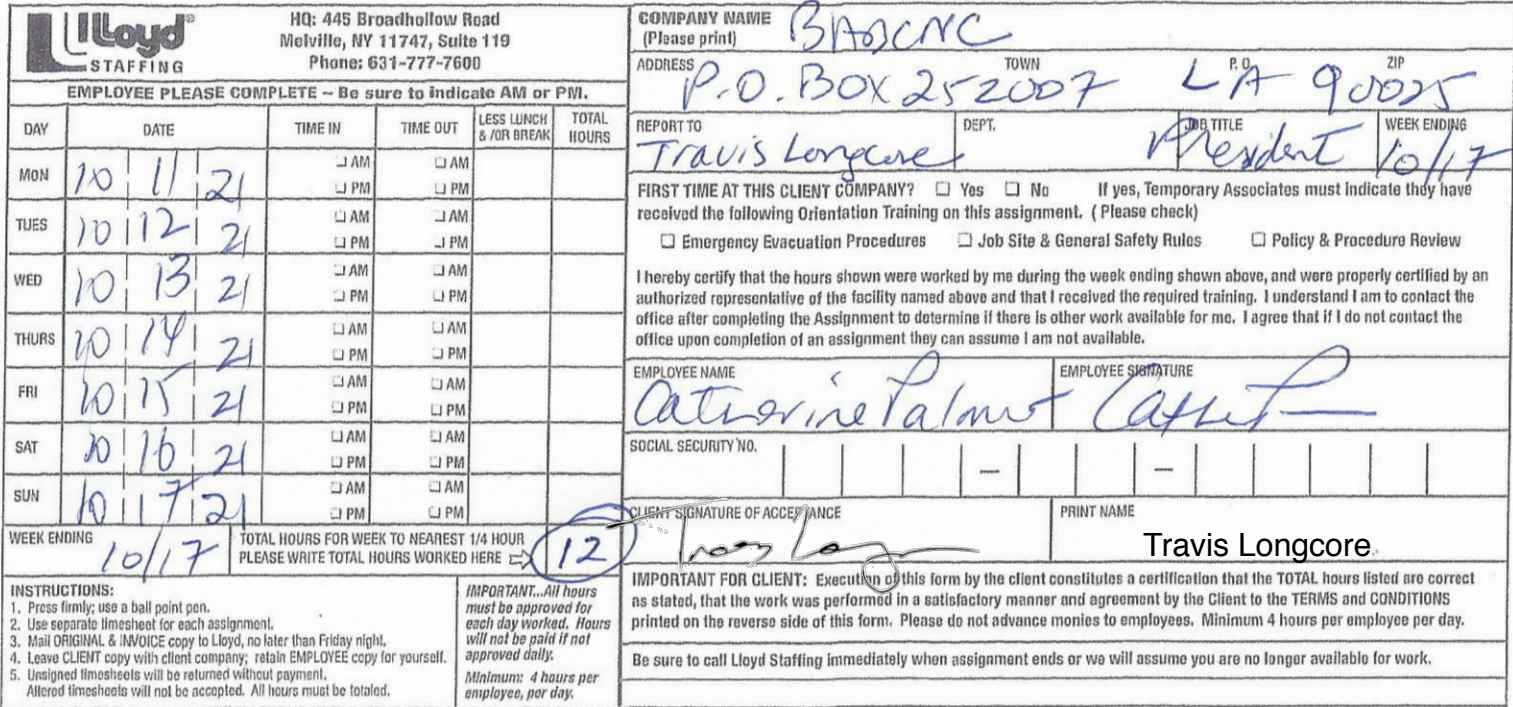 Lloyd
STAFFING
HQ: 445 Broadhollow Road
Melville, NY 11747, Suite 119
Phone: 631-777-7600
EMPLOYEE PLEASE COMPLETE – Be sure to indicate AM or PM.
DAY DATE TIME IN TIME OUT LESS LUNCH & /OR BREAK TOTAL HOURS
MON 10 11 21 AM PM AM PM
TUES 10 12 21 AM PM AM PM
WED 10 13 21 AM PM AM PM
THURS 10 14 21 AM PM AM PM
FRI 10 15 21 AM PM AM PM
SAT 10 16 21 AM PM AM PM
SUN 10 17 21 AM PM AM PM
WEEK ENDING 10/17
TOTAL HOURS FOR WEEK TO NEAREST 1/4 HOUR
PLEASE WRITE TOTAL HOURS WORKED HERE 12
INSTRUCTIONS:
1. Press firmly; use a ball point pen.
2. Use separate timesheet for each assignment.
3. Mail ORIGINAL & INVOICE copy to Lloyd, no later than Friday night.
4. Leave CLIENT copy with client company; retain EMPLOYEE copy for yourself.
5. Unsigned timesheets will be returned without payment.
Altered timesheets will not be accepted. All hours must be totaled.
IMPORTANT...All hours
must be approved for
each day worked. Hours
will not be paid if not
approved daily.
Minimum: 4 hours per
employee, per day.
COMPANY NAME
(Please print)
ADDRESS TOWN P.O. ZIP
P.O. BOX 252007 LA 90025
REPORT TO DEPT. JOB TITLE WEEK ENDING
Travis Longcore President 10/17
FIRST TIME AT THIS CLIENT COMPANY? Yes No If yes, Temporary Associates must indicate they have
received the following Orientation Training on this assignment. ( Please check)
Emergency Evacuation Procedures Job Site & General Safety Rules Policy & Procedure Review
I hereby certify that the hours shown were worked by me during the week ending shown above, and were properly certified by an
authorized representative of the facility named above and that I received the required training. I understand I am to contact the
office after completing the Assignment to determine if there is other work available for me. I agree that if I do not contact the
office upon completion of an assignment they can assume I am not available.
EMPLOYEE NAME EMPLOYEE SIGNATURE
Catherine
SOCIAL SECURITY NO.
CLIENT SIGNATURE OF ACCEPTANCE PRINT NAME
Travis Longcore
IMPORTANT FOR CLIENT: Execution of this form by the client constitutes a certification that the TOTAL hours listed are correct
as stated, that the work was performed in a satisfactory manner and agreement by the Client to the TERMS and CONDITIONS
printed on the reverse side of this form. Please do not advance monies to employees. Minimum 4 hours per employee per day.
Be sure to call Lloyd Staffing immediately when assignment ends or we will assume you are no longer available for work.